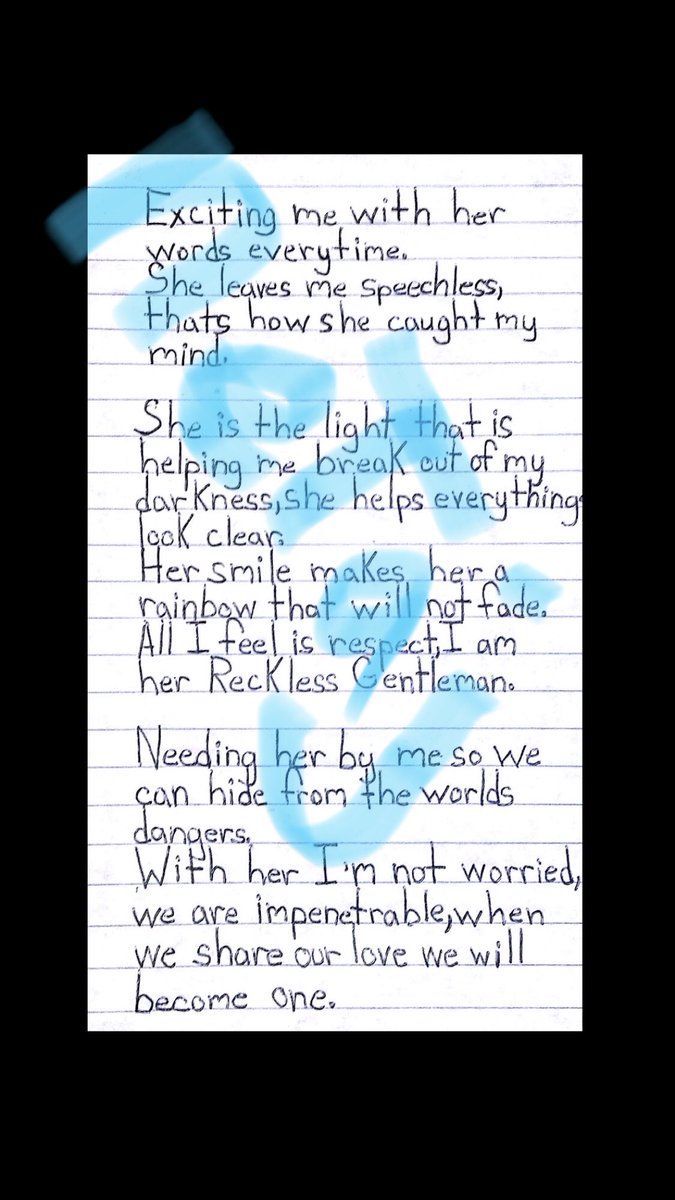 Exciting me with her
words everytime.
She leaves me speechless,
thats how she caught my
mind.
She is the light that is
helping me break out of my
darkness, she helps everything
look clear.
Her smile makes her a
rainbow that will not fade.
All I feel is respect, I am
her Reckless Gentleman.
Needing her by me so we
can hide from the worlds
dangers.
With her I'm not worried,
we are impenetrable, when
we share our love we will
become one.